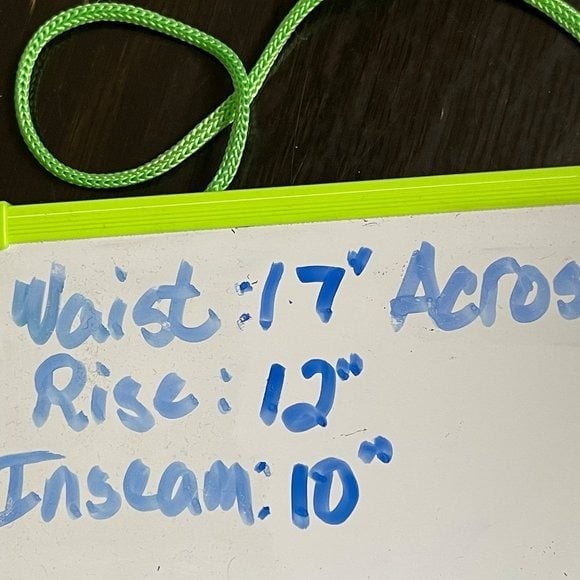 Waist: 17" Acros
Rise: 12"
Inseam: 10"